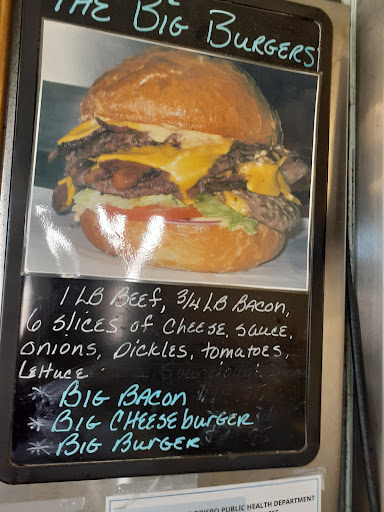 THE BIG BURGERS
1 LB BEEF, 3/4 LB BACON,
6 SLICES OF CHEESE, SAUCE,
ONIONS, PICKLES, TOMATOES,
LETTUCE
* BIG BACON
* BIG CHEESEBURGER
* BIG BURGER
PUBLIC HEALTH DEPARTMENT